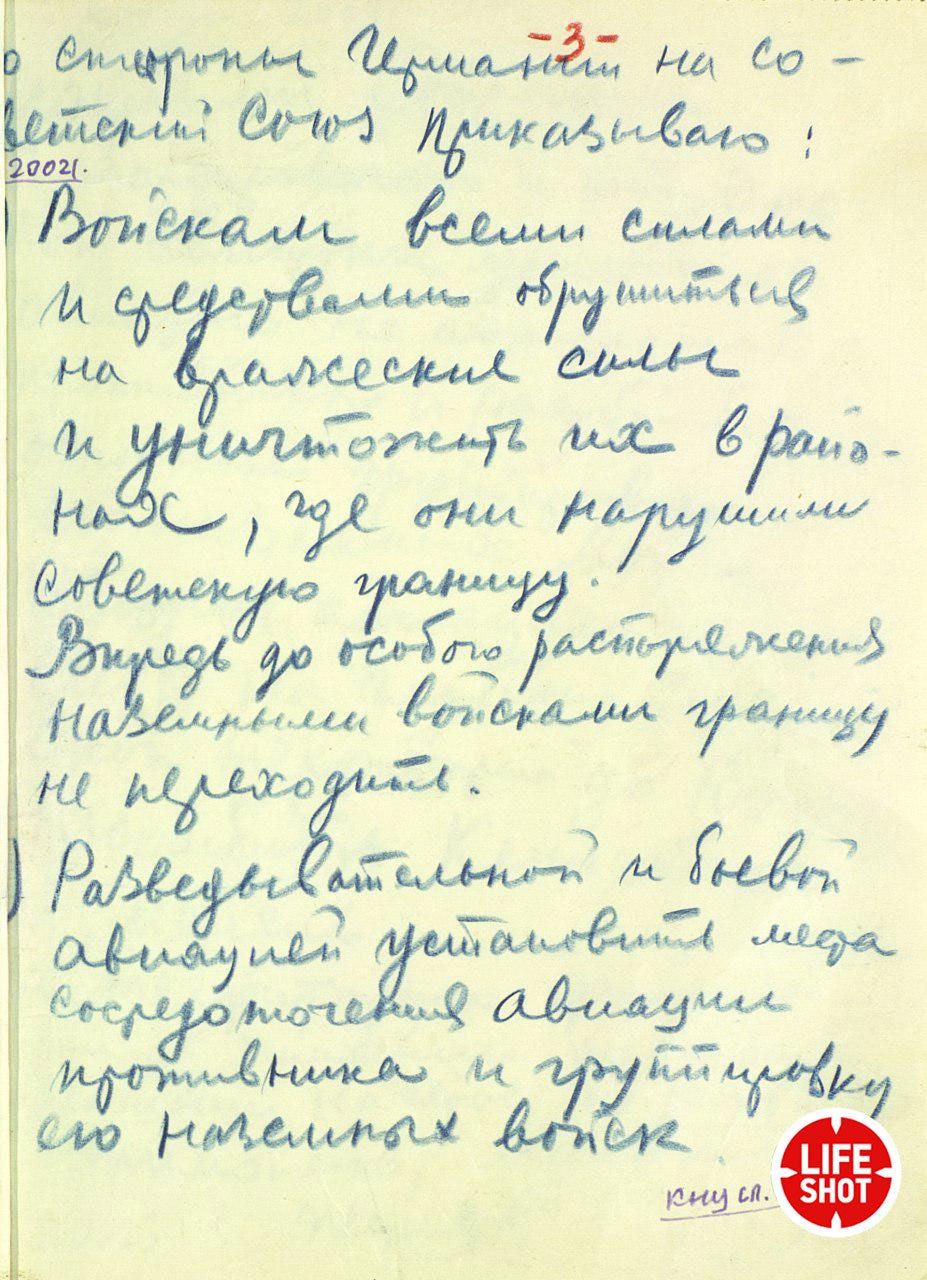 -3-
о стороны Германии на Со-
ветский Союз приказываю:
20021.
) Войскам всеми силами
и средствами обрушиться
на вражеские силы
и уничтожить их в райо-
нах, где они нарушили
советскую границу.
Впредь до особого распоряжения
наземными войсками границу
не переходить.
) Разведывательной и боевой
авиацией установить места
сосредоточения авиации
противника и группировку
его наземных войск.
LIFE
SHOT